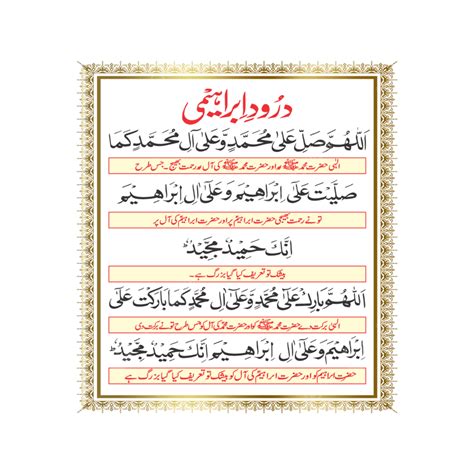 درود ابراہیمی
اَللّٰهُمَّ صَلِّ عَلٰى مُحَمَّدٍ وَّعَلٰٓى اٰلِ مُحَمَّدٍ كَمَا
الٰہی حضرت محمد ﷺ اور حضرت محمد ﷺ کی آل پر رحمت بھیج ۔ جس طرح
صَلَّيْتَ عَلٰٓى اِبْرَاهِيْمَ وَعَلٰٓى اٰلِ اِبْرَاهِيْمَ
تو نے رحمت بھیجی حضرت ابراہیم پر اور حضرت ابراہیم کی آل پر
اِنَّكَ حَمِيْدٌ مَّجِيْدٌ
بیشک تو تعریف کیا گیا بزرگ ہے۔
اَللّٰهُمَّ بَارِكْ عَلٰى مُحَمَّدٍ وَّعَلٰٓى اٰلِ مُحَمَّدٍ كَمَا بَارَكْتَ عَلٰٓى
الٰہی برکت دے حضرت محمد ﷺ کو اور حضرت محمد کی آل کو جس طرح تو نے برکت دی
اِبْرَاهِيْمَ وَعَلٰٓى اٰلِ اِبْرَاهِيْمَ اِنَّكَ حَمِيْدٌ مَّجِيْدٌ
حضرت ابراہیم کو اور حضرت ابراہیم کی آل کو بیشک تو تعریف کیا گیا بزرگ ہے